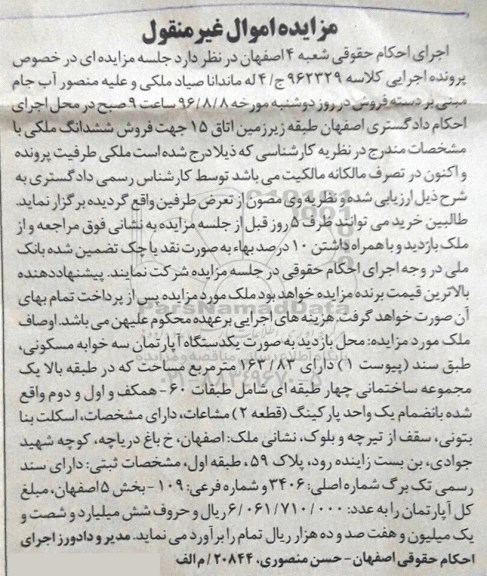 مزایده اموال غیر منقول
اجرای احکام حقوقی شعبه ۴ اصفهان در نظر دارد جلسه مزایده ای در خصوص
پرونده اجرایی کلاسه ۹۶۲۳۲۹ ج/۴ له ماندانا صیاد ملکی و علیه منصور آب جام
مبنی بر دسته فروش در روز دوشنبه مورخه ۹۶/۸/۸ ساعت ۹ صبح در محل اجرای
احکام دادگستری اصفهان طبقه زیرزمین اتاق ۱۵ جهت فروش ششدانگ ملکی با
مشخصات مندرج در نظریه کارشناسی که ذیلا درج شده است ملکی طرفیت پرونده
و اکنون در تصرف مالکانه مالکیت می باشد توسط کارشناس رسمی دادگستری به
شرح ذیل ارزیابی شده و نظریه وی مصون از تعرض طرفین واقع گردیده برگزار نماید.
طالبین خرید می توانند ظرف ۵ روز قبل از جلسه مزایده به نشانی فوق مراجعه و از
ملک بازدید و با همراه داشتن ۱۰ درصد بهاء به صورت نقد یا چک تضمین شده بانک
ملی در وجه اجرای احکام حقوقی در جلسه مزایده شرکت نمایند. پیشنهاددهنده
بالاترین قیمت برنده مزایده خواهد بود ملک مورد مزایده پس از پرداخت تمام بهای
آن صورت خواهد گرفت. هزینه های اجرایی بر عهده محکوم علیهن می باشد. اوصاف
ملک مورد مزایده: محل بازدید به صورت یکدستگاه آپارتمان سه خوابه مسکونی،
طبق سند (پیوست ۱) دارای ۱۶۳/۸۳ متر مربع مساحت که در طبقه بالا یک
مجموعه ساختمانی چهار طبقه ای شامل طبقات ۶۰- همکف و اول و دوم واقع
شده بانضمام یک واحد پارکینگ (قطعه ۲) مشاعات، دارای مشخصات، اسکلت بنا
بتونی، سقف از تیرچه و بلوک، نشانی ملک: اصفهان، خ باغ دریاچه، کوچه شهید
جوادی، بن بست زاینده رود، پلاک ۵۹، طبقه اول، مشخصات ثبتی: دارای سند
رسمی تک برگ شماره اصلی: ۳۴۰۶ و شماره فرعی: ۱۰۹ - بخش ۵ اصفهان، مبلغ
کل آپارتمان را به عدد: ۶/۰۶۱/۷۱۰/۰۰۰ ریال و حروف شش میلیارد و شصت و
یک میلیون و هفت صد و ده هزار ریال تمام را برآورد می نماید. مدیر و دادورز اجرای
احکام حقوقی اصفهان - حسن منصوری. ۲۰۸۴۴/ م الف